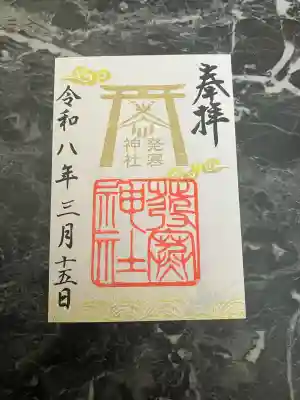 奉拝
発寒
神社
発寒
神社
令和八年三月十五日